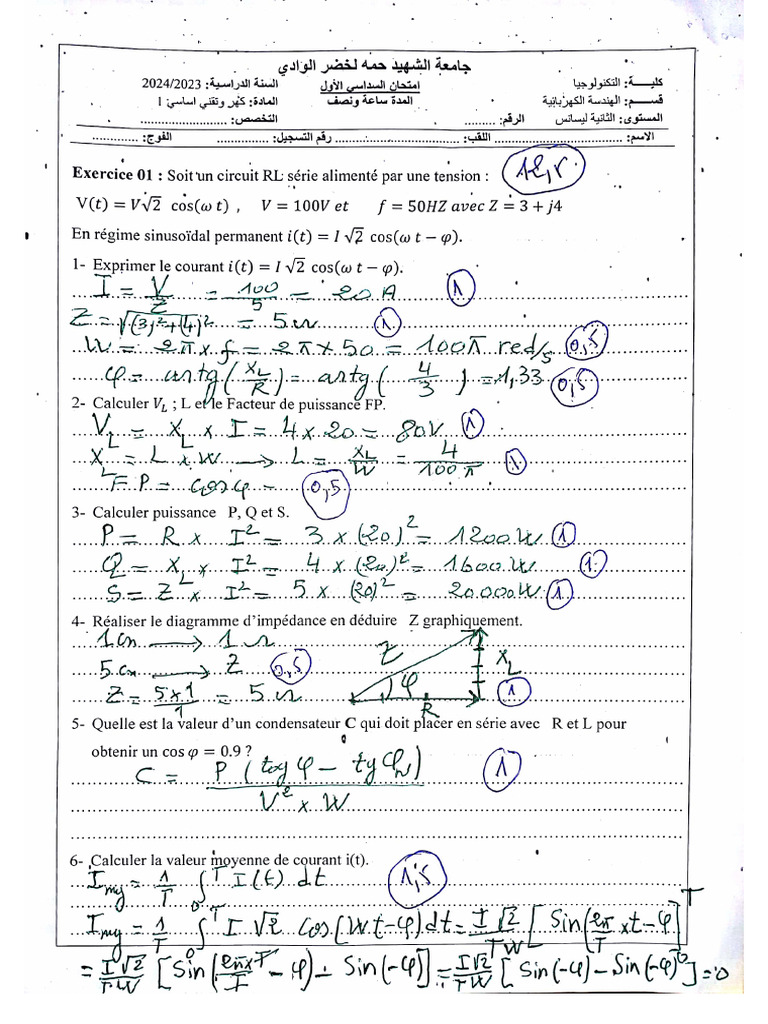 جامعة الشهيد حمه لخضر الوادي
كليـــة: التكنولوجيا امتحان السداسي الأول السنة الدراسية: 2024/2023
قســـم: الهندسة الكهربائية المدة ساعة ونصف المادة: كهر وتقني اساسي: 1
المستوى: الثانية ليسانس الرقم: ......... التخصص: .........................
الاسم: ................................ اللقب: .......................... رقم التسجيل: ....................... الفوج: .............
Exercice 01 : Soit un circuit RL série alimenté par une tension :
V(t) = V√2 cos(ω t) , V = 100V et f = 50HZ avec Z = 3 + j4
En régime sinusoïdal permanent i(t) = I √2 cos(ω t − φ).
1- Exprimer le courant i(t) = I √2 cos(ω t − φ).
I = V/Z = 100/5 = 20A 1
Z = √(3)²+(4)² = 5Ω 1
W = 2π x f = 2π x 50 = 100π red/s 0,5
φ = artg(XL/R) = artg(4/3) = 1,33 0,5
2- Calculer VL ; L et le Facteur de puissance FP.
VL = XL x I = 4 x 20 = 80V 1
XL = L x W → L = XL/W = 4/100π 1
FP = cos φ - 0,5
3- Calculer puissance P, Q et S.
P = R x I² = 3 x (20)² = 1200W 1
Q = XL x I² = 4 x (20)² = 1600W 1
S = Z x I² = 5 x (20)² = 20000W 1
4- Réaliser le diagramme d'impédance en déduire Z graphiquement.
1cm → 1Ω
5cm → Z 0,5
Z = 5x1/1 = 5Ω
Z φ R XL 1
5- Quelle est la valeur d'un condensateur C qui doit placer en série avec R et L pour
obtenir un cos φ = 0.9 ?
C = P (tg φ − tg φ)/V² x W 1
6- Calculer la valeur moyenne de courant i(t).
Imy = 1/T ∫₀ᵀ I(t) dt 1,5
Imy = 1/T ∫₀ᵀ I √2 cos(Wt−φ)dt = I√2/TW [Sin(2π/T x t − φ)]₀ᵀ
= I√2/TW [Sin(2πxT/T − φ) − Sin(−φ)] = I√2/TW [Sin(−φ) − Sin(−φ)] = 0